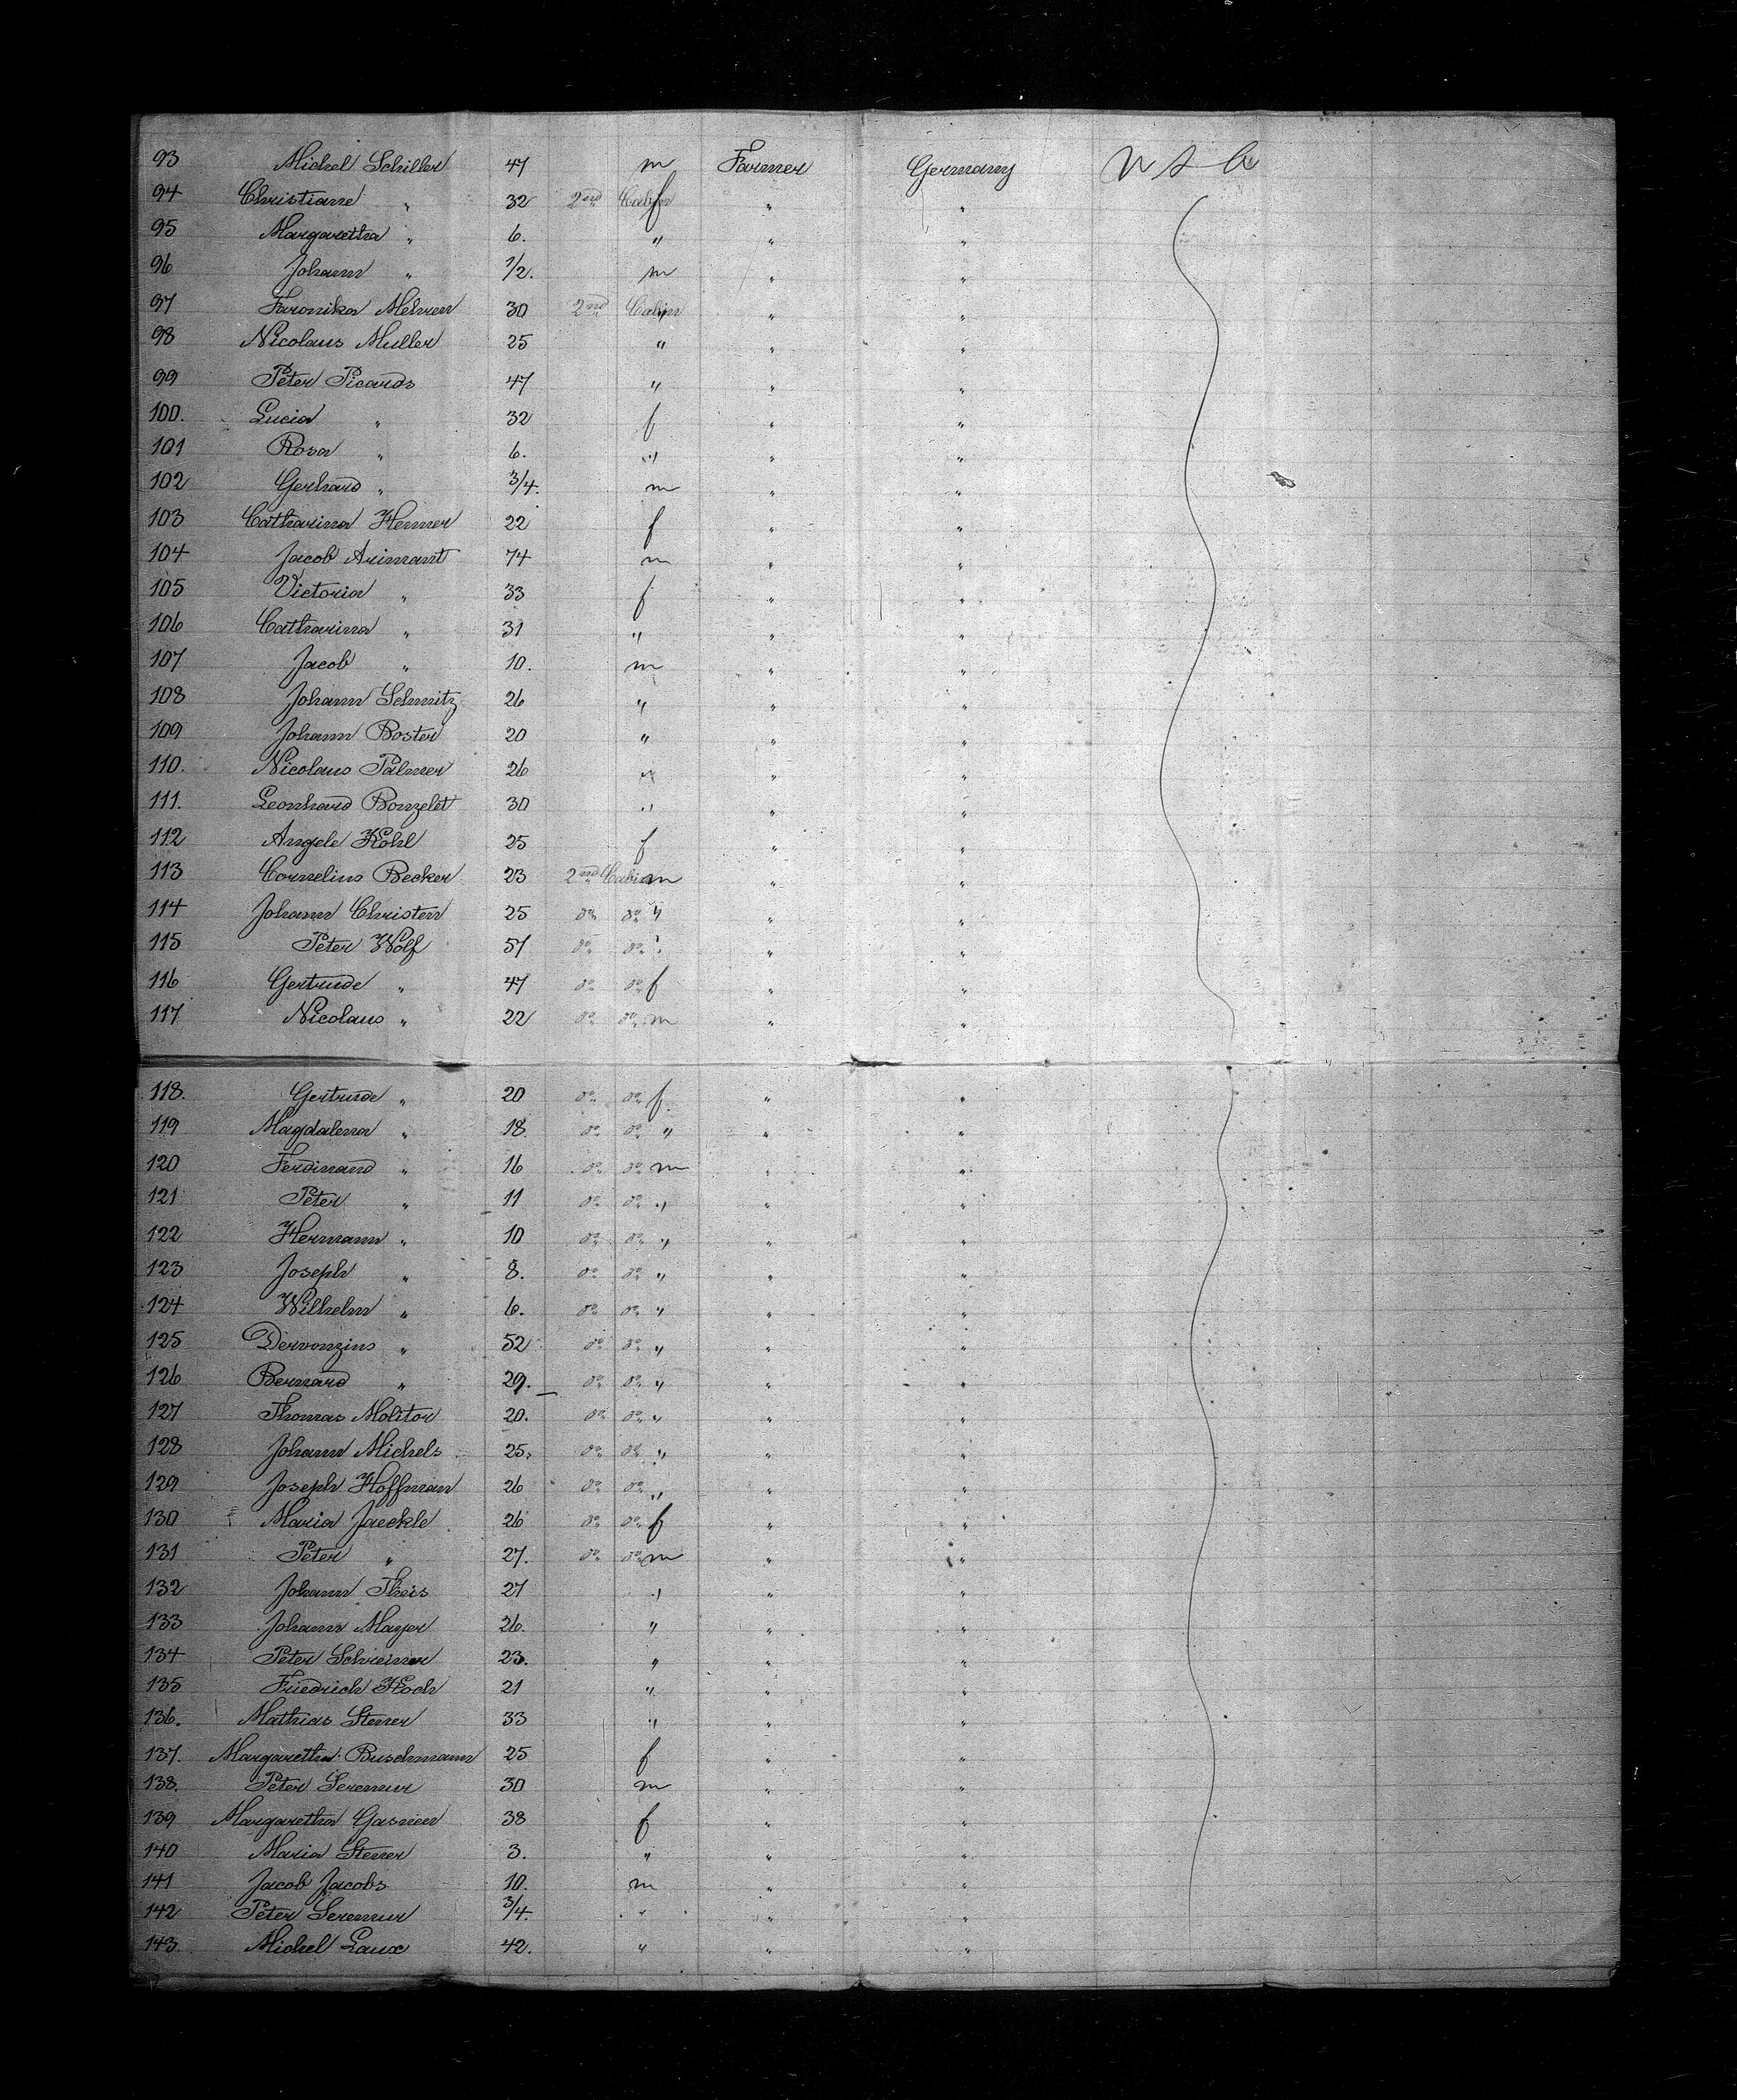 93 Michel Schiller 47 m Farmer Germany U S A
94 Christiane " 32 2nd Cabin f " "
95 Margaretha " 6. " " "
96 Johann " 1/2. m " "
97 Fronika Mehren 30 2nd Cabin " " "
98 Nicolaus Muller 25 " " "
99 Peter Picards 47 " " "
100. Lucia " 32 f " "
101 Rosa " 6. " " "
102 Gerhard " 3/4. m " "
103 Catharina Hemmer 22 f " "
104 Jacob Arimant 74 m " "
105 Victoria " 33 f " "
106 Catharina " 31 " " "
107 Jacob " 10. m " "
108 Johann Schmitz 26 " " "
109 Johann Boster 20 " " "
110. Nicolaus Palmer 26 " " "
111. Leonhard Bonzelet 30 " " "
112 Angele Kohl 25 f " "
113 Cornelius Becker 23 2nd Cabin m " "
114 Johann Christen 25 do do " " "
115 Peter Wolf 57 do do " " "
116 Gertrude " 47 do do f " "
117 Nicolaus " 22 do do m " "
118. Gertrude " 20 do do f " "
119 Magdalena " 18. do do " " "
120 Ferdinand " 16 do do m " "
121 Peter " 11 do do " " "
122 Hermann " 10 do do " " "
123 Joseph " 8. do do " " "
124 Wilhelm " 6. do do " " "
125 Dervonzius " 52 do do " " "
126 Bernard " 29. do do " " "
127 Thomas Molitor 20. do do " " "
128 Johann Michels 25. do do " " "
129 Joseph Hoffman 26 do do " " "
130 Maria Jaeckle 26 do do f " "
131 Peter " 27. do do m " "
132 Johann Theis 27 " " "
133 Johann Mayer 26. " " "
134 Peter Schreiner 23. " " "
135 Friedrich Koch 21 " " "
136. Mathias Sterrer 33 " " "
137. Margaretha Buschmann 25 f " "
138. Peter Seremur 30 m " "
139 Margaretha Gasnier 38 f " "
140 Maria Sterrer 3. " " "
141 Jacob Jacobs 10. m " "
142 Peter Seremur 3/4. " " "
143 Michel Laux 42. " " "